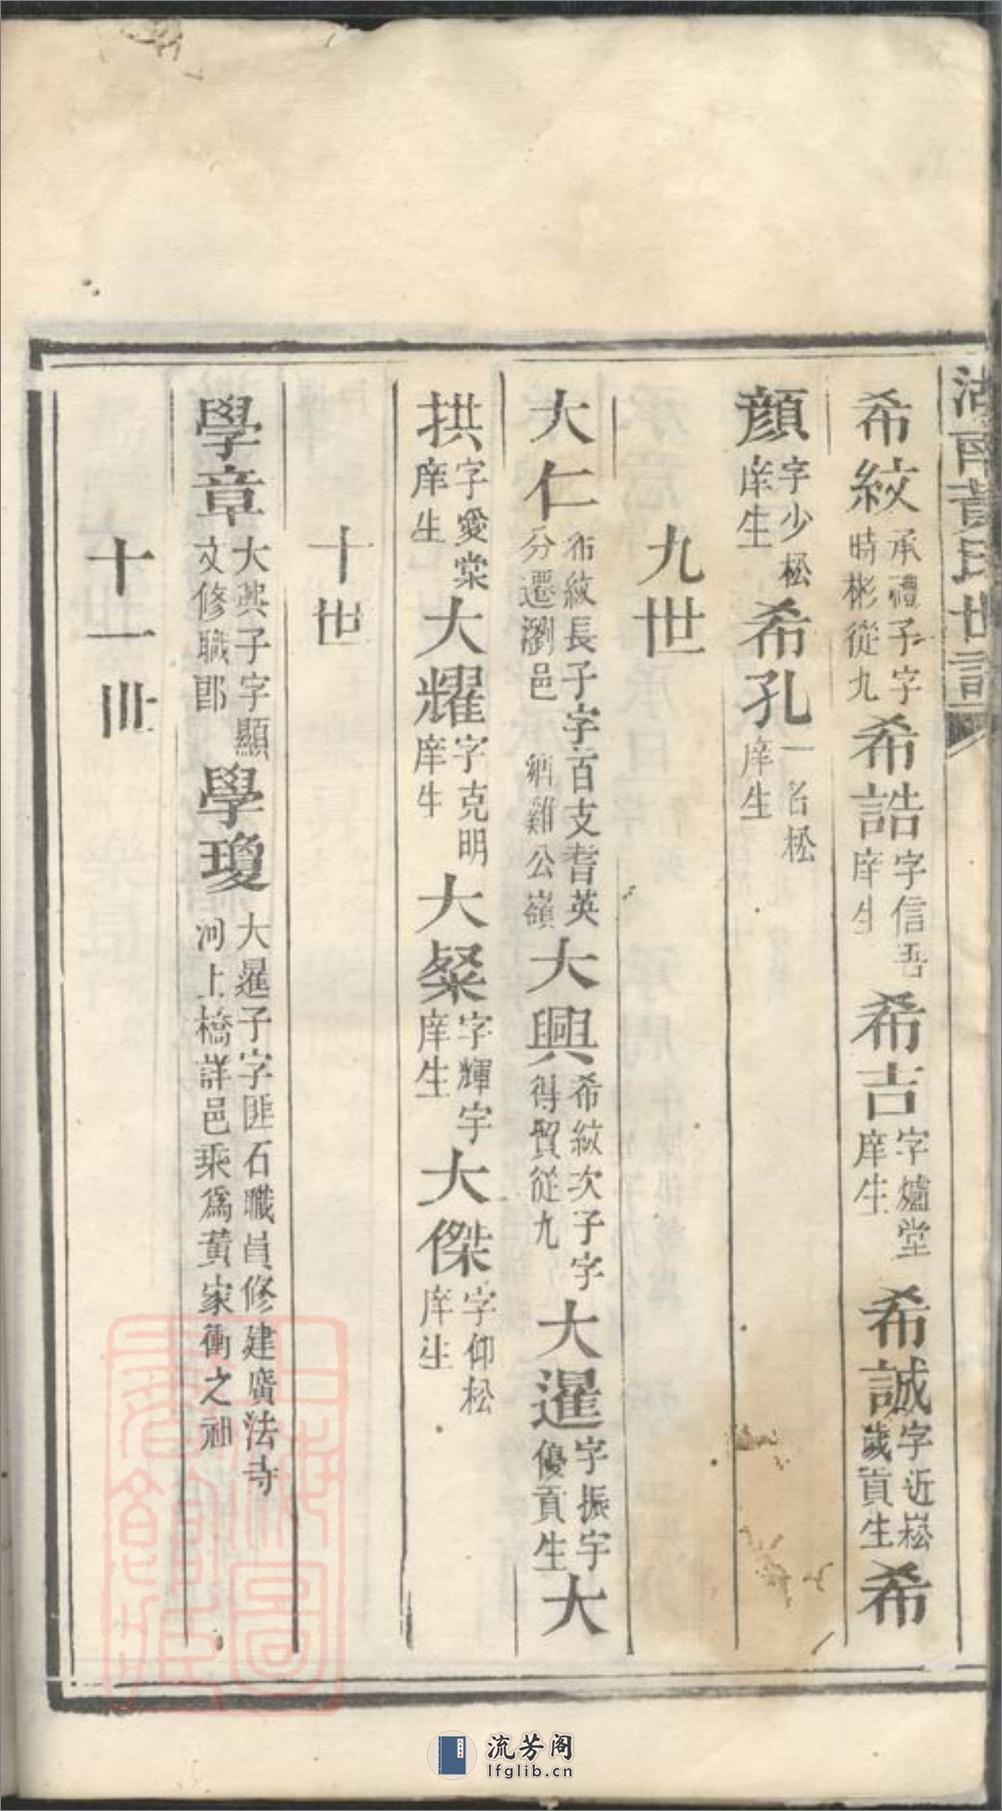 湖南黃氏世譜
希紋承禮子字時彬從九希誥字信吾庠生希吉字爐堂庠生希誠字近崧歲貢生希
顏字少松庠生希孔一名松庠生
九世
大仁希紋長子字百支耆英分遷瀏邑雞公嶺大興希紋次子字得賢從九大暹字振宇優貢生大
拱字愛棠庠生大耀字克明庠生大粲字輝宇庠生大傑字仰松庠生
十世
學章大興子字顯文修職郎學瓊大暹子字匪石職員修建廣法寺河上橋詳邑乘為黃家衝之祖
十一世
流芳阁
lfglib.cn